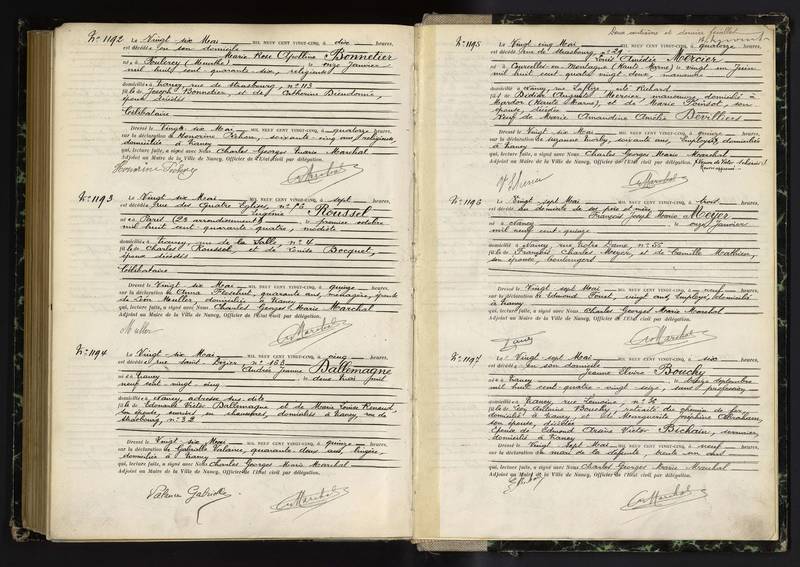 N° 1192
Le Vingt six Mai MIL NEUF CENT VINGT-CINQ, à dix heures,
est décédée en son domicile
Marie Rose Apolline Bonnetier
née à (Meurthe) le onze Janvier
mil huit cent quarante six, religieuse
domiciliée à Nancy, rue de Strasbourg, n° 113
fille de Joseph Bonnetier, et de Catherine
époux décédés
Célibataire
Dressé le Vingt six Mai MIL NEUF CENT VINGT-CINQ, à quatorze heures,
sur la déclaration de Honorine soixante cinq ans, religieuse,
domiciliée à Nancy
qui, lecture faite, a signé avec Nous Charles Georges Marie Marchal
Adjoint au Maire de la Ville de Nancy, Officier de l'Etat civil par délégation.
Honorine
N° 1193
Le Vingt six Mai MIL NEUF CENT VINGT-CINQ, à sept heures,
est décédée rue des Quatre Eglises, n°
Eugénie Roussel
née à Paris (2e arrondissement) le premier octobre
mil huit cent quarante quatre, modiste
domiciliée à Nancy, rue de la Salle, n° 4
fille de Charles Roussel, et de Louise Bocquet,
époux décédés
Célibataire
Dressé le Vingt six Mai MIL NEUF CENT VINGT-CINQ, à quinze heures,
sur la déclaration de Anna quarante ans, ménagère, épouse
de Léon Muller, domiciliée à Nancy
qui, lecture faite, a signé avec Nous Charles Georges Marie Marchal
Adjoint au Maire de la Ville de Nancy, Officier de l'Etat civil par délégation.
Muller
N° 1194
Le Vingt six Mai MIL NEUF CENT VINGT-CINQ, à cinq heures,
est décédée rue Saint Dizier n° 153
Andrée Jeanne Ballemagne
née à Nancy le deux Mai mil
neuf cent vingt cinq
domiciliée à Nancy, adresse sus dite
fille de Edouard Victor Ballemagne et de Marie Louise Renaud,
son épouse, ouvriers en chaussures, domiciliés à Nancy, rue de
Strasbourg, n° 32
Dressé le Vingt six Mai MIL NEUF CENT VINGT-CINQ, à quinze heures,
sur la déclaration de Gabrielle Valance, quarante deux ans, lingère,
domiciliée à Nancy
qui, lecture faite, a signé avec Nous Charles Georges Marie Marchal
Adjoint au Maire de la Ville de Nancy, Officier de l'Etat civil par délégation.
Valance Gabrielle
Deux centième et dernier feuillet
N° 1195
Le Vingt cinq Mai MIL NEUF CENT VINGT-CINQ, à quatorze heures,
est décédé rue de Strasbourg n° 29
Louis Amédée Mercier
né à Courcelles-en-Montagne (Haute-Marne) le vingt un Juin
mil huit cent quatre vingt deux, manœuvre
domicilié à Nancy, rue Laflize, cité Richard
fils de Didier Auguste Mercier, manœuvre, domicilié à
Mardor (Haute Marne), et de Marie Poinsot, son
épouse, décédée
Veuf de Marie Amandine Amélie Devilliers
Dressé le Vingt six Mai MIL NEUF CENT VINGT-CINQ, à quinze heures,
sur la déclaration de Eugène soixante ans, employé, domicilié
à Nancy
qui, lecture faite, a signé avec Nous Charles Georges Marie Marchal
Adjoint au Maire de la Ville de Nancy, Officier de l'Etat civil par délégation.
N° 1196
Le Vingt sept Mai MIL NEUF CENT VINGT-CINQ, à trois heures,
est décédé au domicile de ses père et mère
François Joseph Marie Meyer
né à Nancy le onze Janvier
mil neuf cent quinze
domicilié à Nancy, rue Notre Dame, n° 55
fils de François Charles Meyer, et de Camille Mathieu,
son épouse, boulangers
Dressé le Vingt sept Mai MIL NEUF CENT VINGT-CINQ, à neuf heures,
sur la déclaration de Edmond vingt ans, employé, domicilié
à Nancy
qui, lecture faite, a signé avec Nous Charles Georges Marie Marchal
Adjoint au Maire de la Ville de Nancy, Officier de l'Etat civil par délégation.
N° 1197
Le Vingt sept Mai MIL NEUF CENT VINGT-CINQ, à six heures,
est décédée en son domicile
Jeanne Elvire Bouchy
née à Nancy le treize septembre
mil huit cent quatre-vingt seize, sans profession
domiciliée à Nancy, rue Lemoine, n° 32
fille de Léon Antoine Bouchy, retraité du chemin de fer,
domicilié à Nancy, et de Marguerite Joséphine Abraham,
son épouse, décédée
Epouse de Edmond Victor Bichain,
domicilié à Nancy
Dressé le Vingt sept Mai MIL NEUF CENT VINGT-CINQ, à neuf heures,
sur la déclaration de mari de la défunte, trente un ans
qui, lecture faite, a signé avec Nous Charles Georges Marie Marchal
Adjoint au Maire de la Ville de Nancy, Officier de l'Etat civil par délégation.